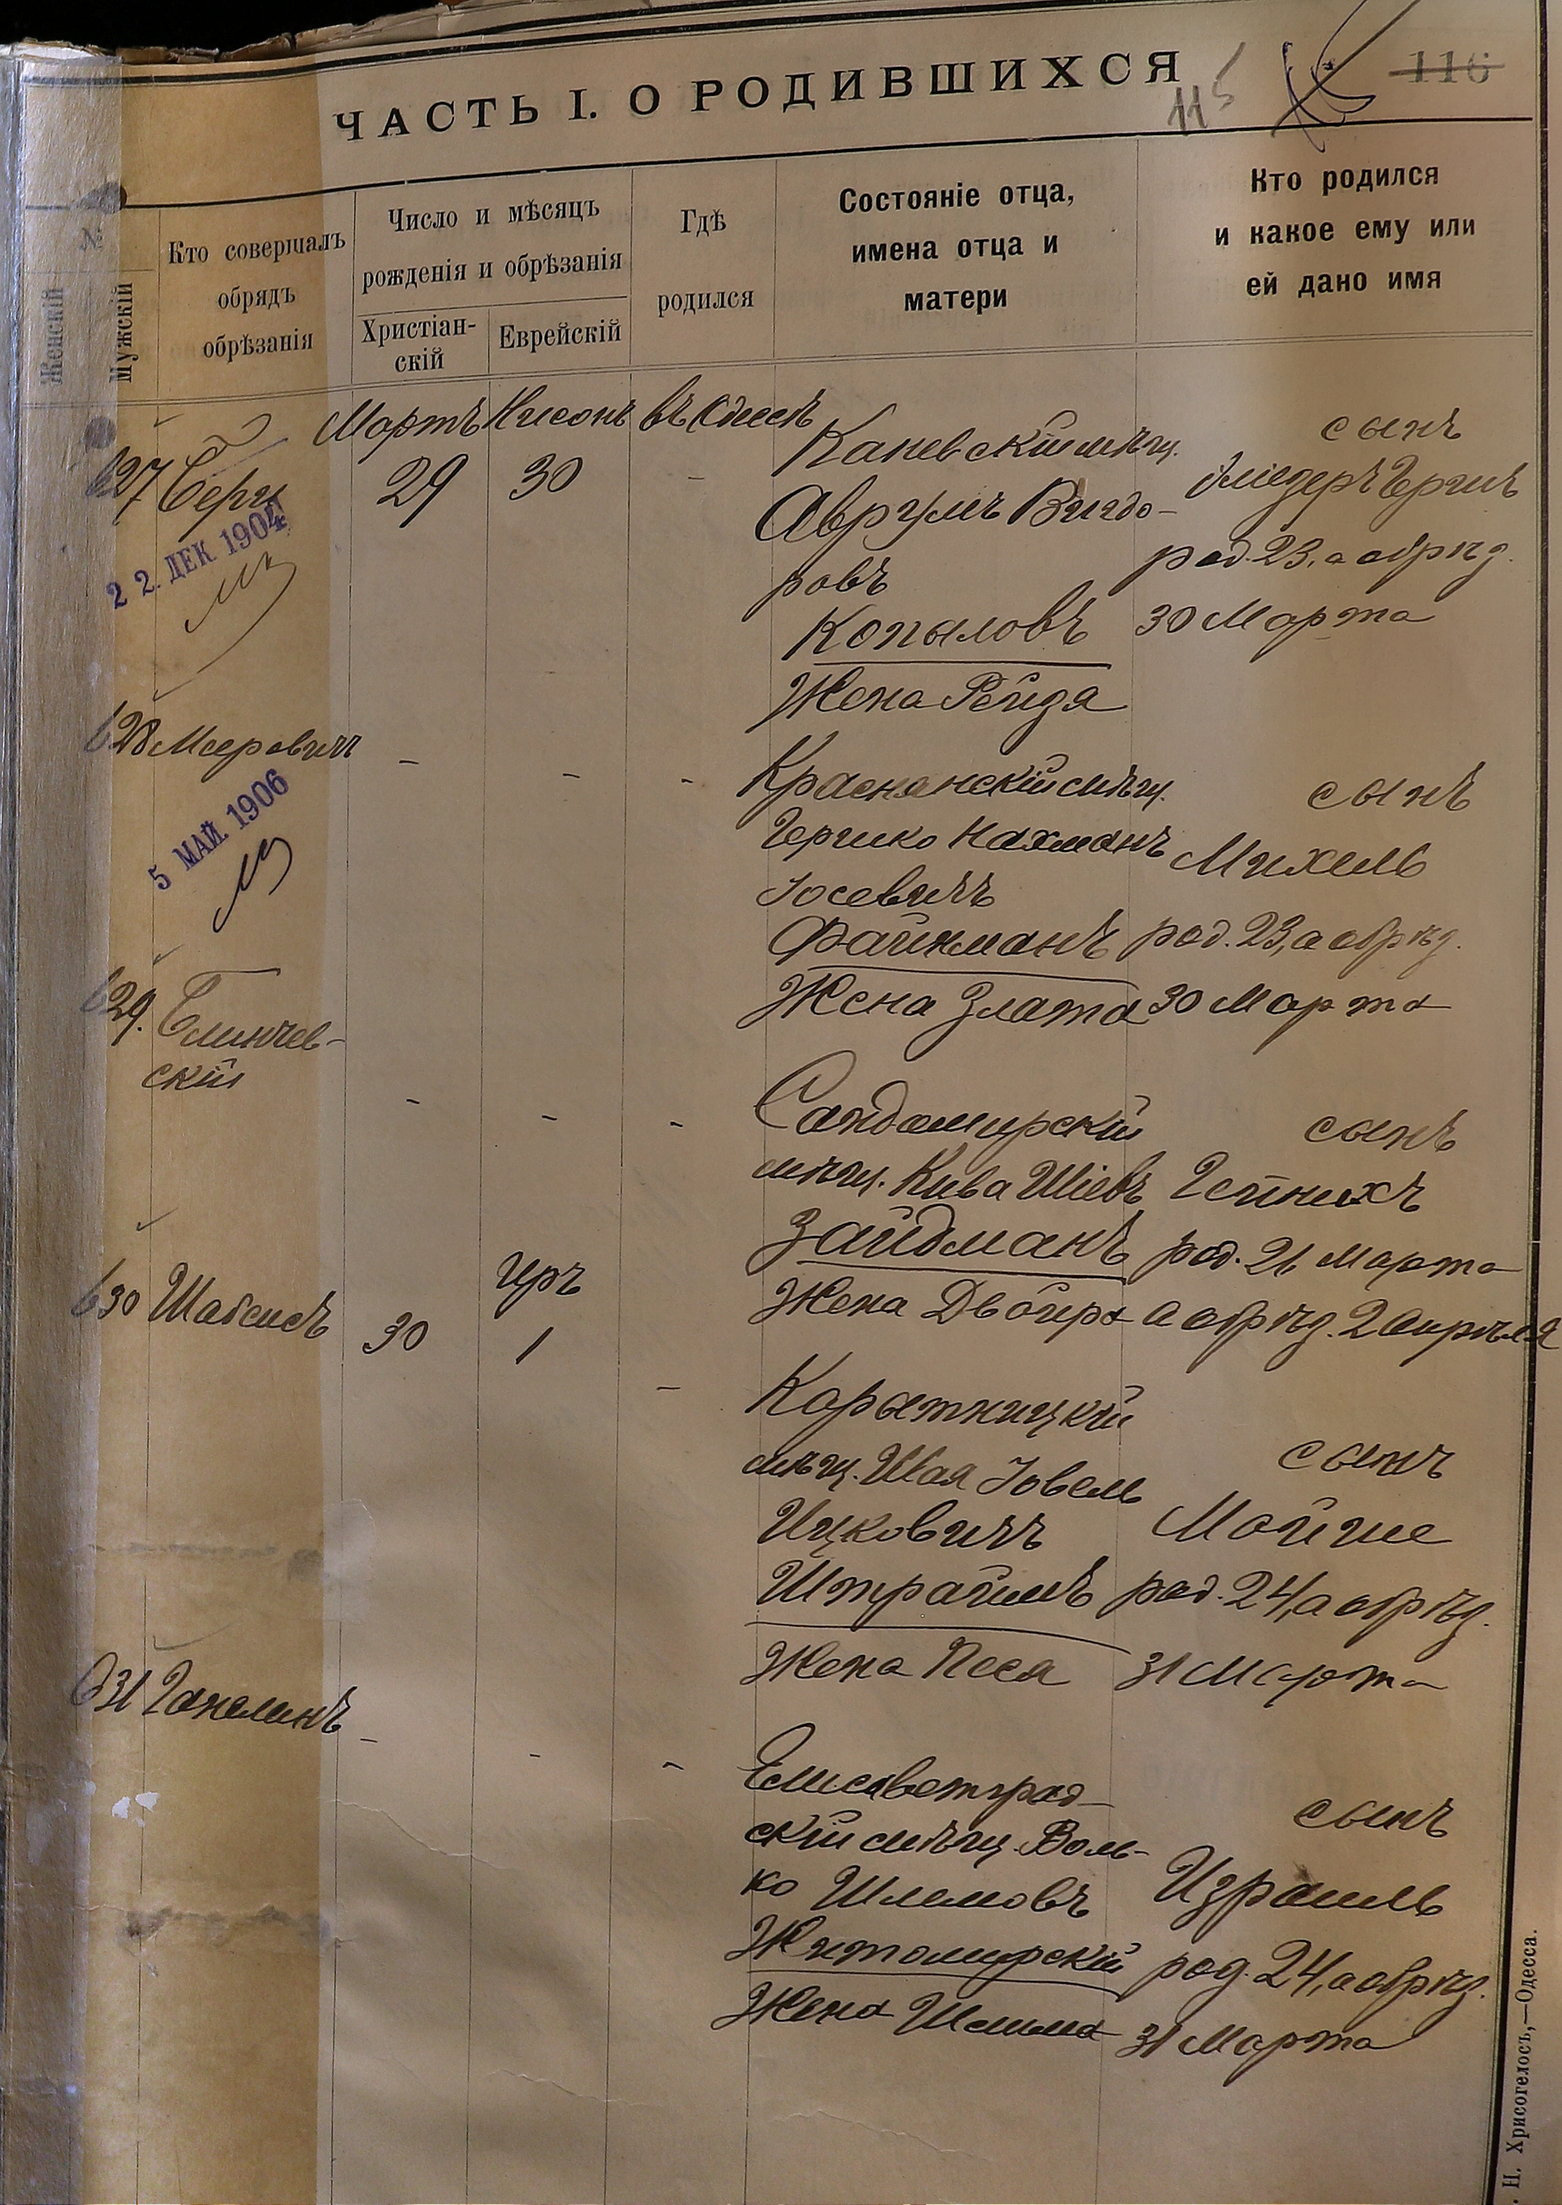 ЧАСТЬ I. О РОДИВШИХСЯ
115
116
№
Женскій
Мужскій
Кто совершалъ
обрядъ
обрѣзанія
Число и мѣсяцъ
рожденія и обрѣзанія
Христіан-
скій
Еврейскій
Гдѣ
родился
Состояніе отца,
имена отца и
матери
Кто родился
и какое ему или
ей дано имя
Мартъ Нисонъ въ Одессѣ
627 Бергъ 29 30 -
22. ДЕК. 1904
Каневскій мѣщ.
Аврумъ Вигдо-
ровъ
Копыловъ
Жена Рейзя
сынъ
Гершъ
род. 23, а обрѣз.
30 Марта
628 Меровичъ - - -
5 МАЙ. 1906
Краснянскій мѣщ.
Гершко Нахманъ
Іосевичъ
Файнманъ
Жена Злата
сынъ
Михель
род. 23, а обрѣз.
30 Марта
629. Блинчев-
скій
- - -
Сандомирскій
мѣщ. Кива Шіевъ
Зайдманъ
Жена Двойра
сынъ
Гейнихъ
род. 26 Марта
а обрѣз. 2 Апрѣля
Иръ
630 Шабсисъ 30 1 -
Корытницкій
мѣщ. Шая Іовель
Ицковичъ
Штраймъ
Жена Песя
сынъ
Мойше
род. 24, а обрѣз.
31 Марта
631 Ганелинъ - - -
Елисаветград-
скій мѣщ. Воль-
ко Шлемовъ
Житомирскій
Жена
сынъ
Израиль
род. 24, а обрѣз.
31 Марта
Н. Хрисогелосъ,—Одесса.